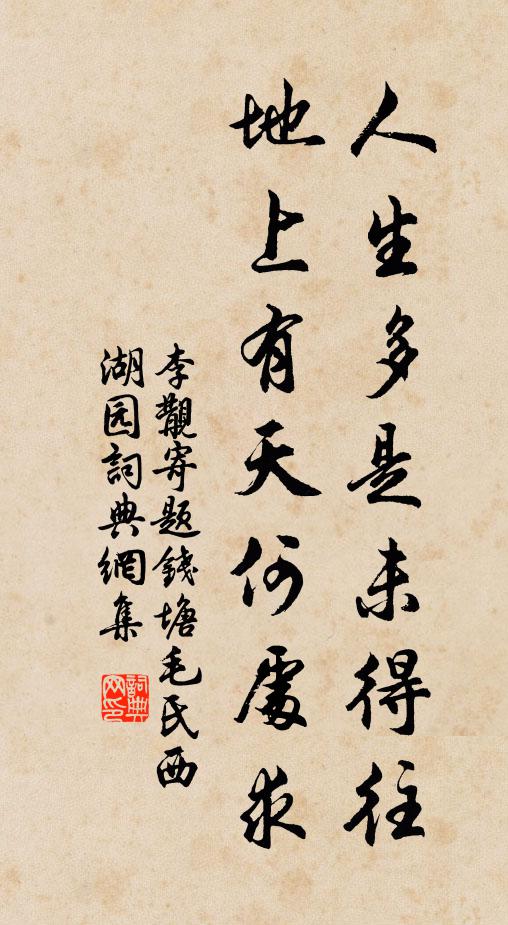 人生多是未得往
地上有天何處求
李觏寄題錢塘毛氏西
湖园詞典網集
詞典
网印